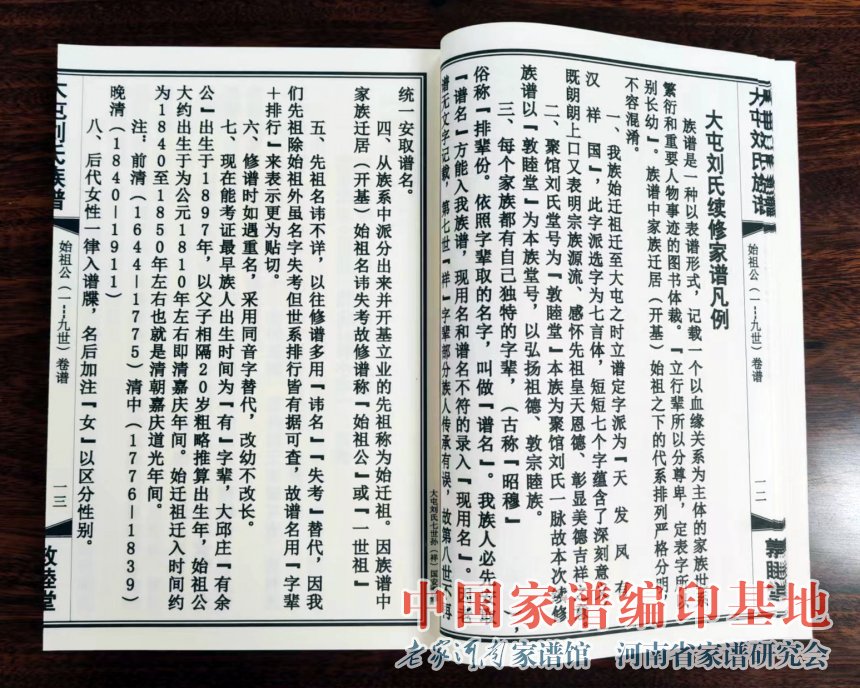 大屯刘氏族谱
始祖公（一--九世）卷谱
一二
敦睦堂
大屯刘氏续修家谱凡例
族谱是一种以表谱形式，记载一个以血缘关系为主体的家族世系
繁衍和重要人物事迹的图书体裁。『立行辈所以分尊卑，定表字所以
别长幼』。族谱中家族迁居（开基）始祖之下的代系排列严格分明，
不容混淆。
一、我族始迁祖迁至大屯之时立谱定字派为『天 发 凤 有
汉 祥 国』，此字派选字为七言体，短短七个字蕴含了深刻意
既朗朗上口又表明宗族源流、感怀先祖皇天恩德、彰显美德吉祥
二、聚馆刘氏堂号为『敦睦堂』本族为聚馆刘氏一脉故本次续修
族谱以『敦睦堂』为本族堂号，以弘扬祖德、敦宗睦族。
三、每个家族都有自己独特的字辈，（古称『昭穆』，
俗称『排辈份。依照字辈取的名字，叫做『谱名』，我族人必先
『谱名』方能入我族谱，现用名和谱名不符的录入『现用名』。
谱无文字记载，第七世『祥』字辈部分族人传承有误，故第八世不再
大屯刘氏七世孙（祥）国
统一安取谱名。
四、从族系中派分出来并开基立业的先祖称为始迁祖。因族谱中
家族迁居（开基）始祖名讳失考故修谱称『始祖公』或『一世祖』
五、先祖名讳不详，以往修谱多用『讳名』『失考』替代，因我
们先祖除始祖外虽名字失考但世系排行皆有据可查，故谱名用『字辈
＋排行』来表示更为贴切。
六、修谱时如遇重名，采用同音字替代，改幼不改长。
七、现在能考证最早族人出生时间为『有』字辈，大邱庄『有余
公』出生于1897年，以父子相隔20岁粗略推算出生年，始祖公
大约出生于为公元1810年左右即清嘉庆年间。始迁祖迁入时间约
为1840至1850年左右也就是清朝嘉庆道光年间。
注：前清（1644—1775）清中（1776—1839）
晚清（1840—1911）
八、后代女性一律入谱牒，名后加注『女』以区分性别。
大屯刘氏族谱
始祖公（一--九世）卷谱
一三
敦睦堂
中国家谱编印基地
老家河南家谱馆 河南省家谱研究会